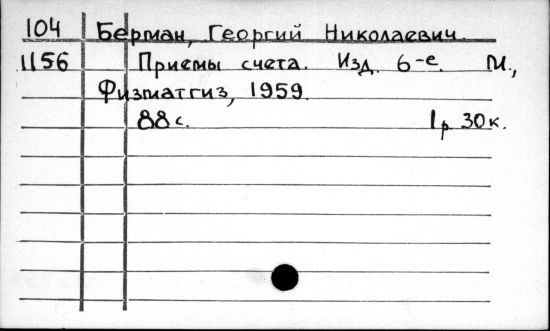 104 Берман, Георгий Николаевич.
1156 Приемы счета. Изд. 6-е. М.,
Физматгиз, 1959.
88с. 1р. 30к.